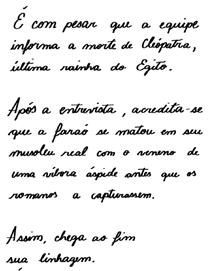 É com pesar que a equipe
informa a morte de Cleópatra,
última rainha do Egito.
Após a entrevista, acredita-se
que a faraó se matou em seu
musoleu real com o veneno de
uma víbora áspide antes que os
romanos a capturassem.
Assim, chega ao fim
suá linhagem.